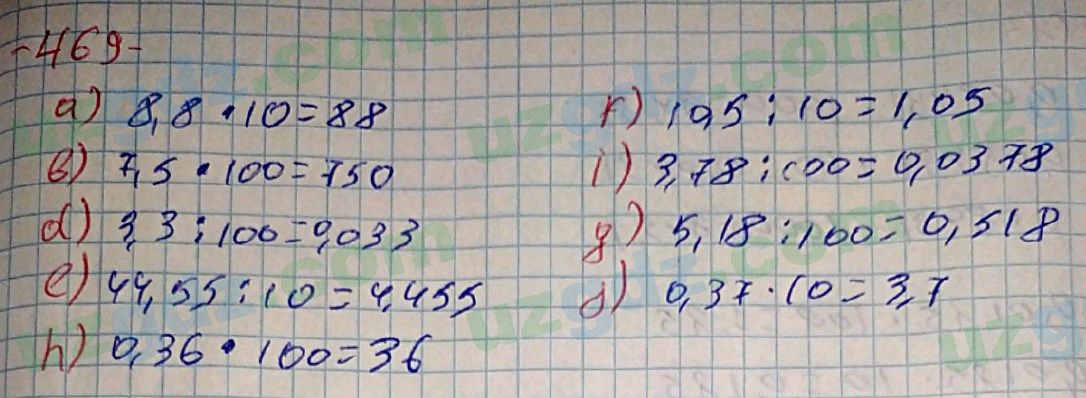 -469-
a) 8,8 • 10 = 88
b) 7,5 • 100 = 750
d) 3,3 : 100 = 0,033
e) 44,55 : 10 = 4,455
h) 0,36 • 100 = 36
r) 10,5 : 10 = 1,05
i) 3,78 : 100 = 0,0378
g) 5,18 : 100 = 0,518
j) 0,37 • 10 = 3,7
uzgdz.com